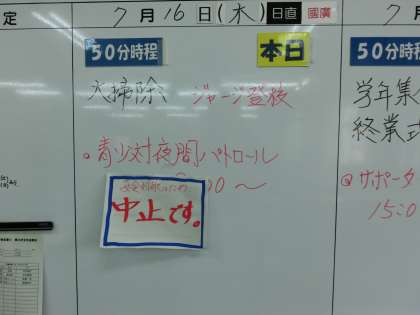 定
7月16日(木) 日直 國廣
7月
50分時程
本日
50分時程
大掃除 ジャージ登校
学年集
終業式
青少対夜間パトロール
00～
中止です。
サポータ
15:0